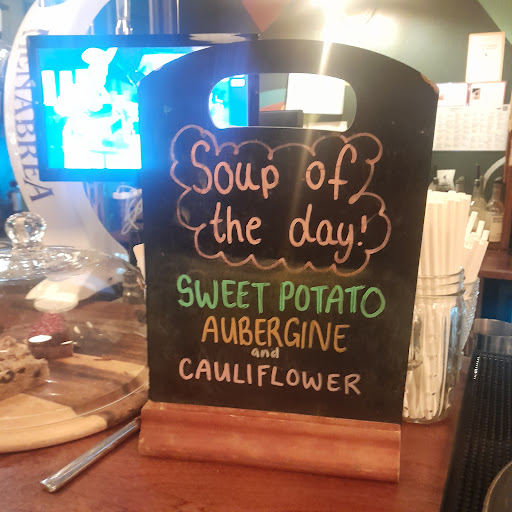 Soup of
the day!
SWEET POTATO
AUBERGINE
and
CAULIFLOWER
MENABREA